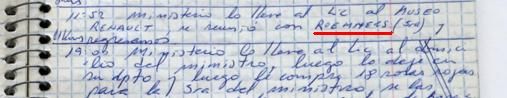 11:52 Ministerio lo llevé al Lic al Museo
RENAULT, se reunió con ROEMMERS (sic) y
luego regresamos
19:00 Ministerio lo llevé al Lic al domici
lio del ministro, luego lo dejé en
su dpto, y luego le compré 18 rosas rojas
para la Sra del ministro se las